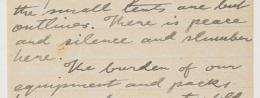 the small tents are but
outlines. There is peace
and silence and slumber
here.
The burden of our
equipment and packs